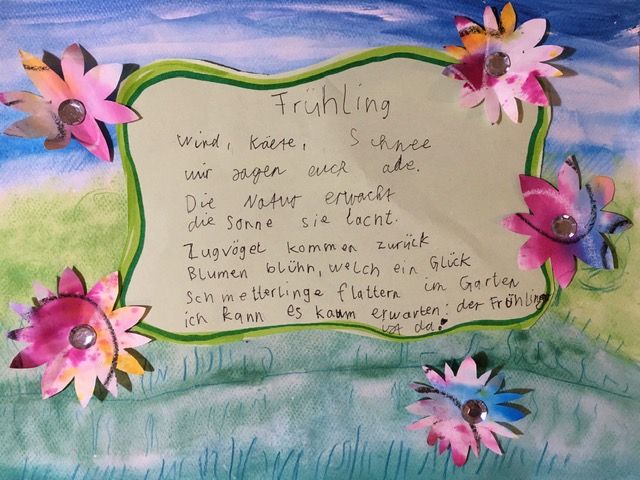 Frühling
Wind, Käete, Schnee
wir sagen euch ade.
Die Natur erwacht
die Sonne sie lacht.
Zugvögel kommen zurück
Blumen blühn, welch ein Glück
Schmetterlinge flattern im Garten
ich kann es kaum erwarten: der Frühling
ist da!